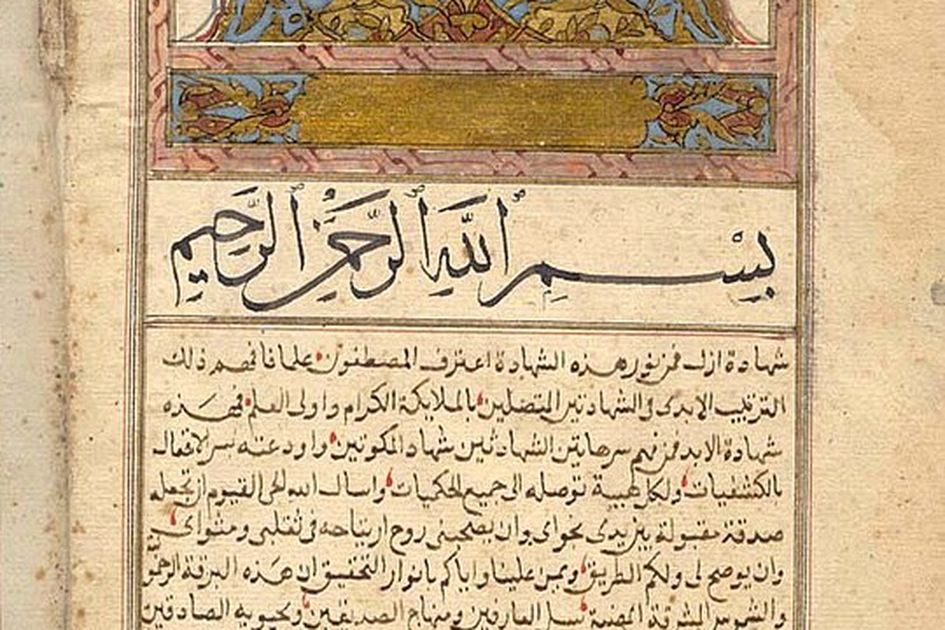 بِسْمِ ٱللَّهِ ٱلرَّحْمَٰنِ ٱلرَّحِيمِ
شهادة ازل فمن نور هذه الشهادة اعترف المصطفون علما فافهم ذلك
الترتيب الابدى فى الشهادتين المتصلين بالملايكة الكرام واولى العلم فهذه
شهادة الابد فمن فهم سر هاتين الشهادتين شهاد المكونين واودعته سر لاقفال
بالكشفيات ولكل هيبة توصله الى جميع الحكميات واسال الله الحى القيوم ان يجعله
صدقة مقبولة بين يدى نجواى وان يصحبنى روح ارتياحه فى تقلبى ومثواى
وان يوضح لى ولكم الطريق ويمن علينا واياكم بانوار التحقيق ان هذه البرقة
والشموس المشرقة المضية سبل العارفين ومنهاج الصديقين الصادقين